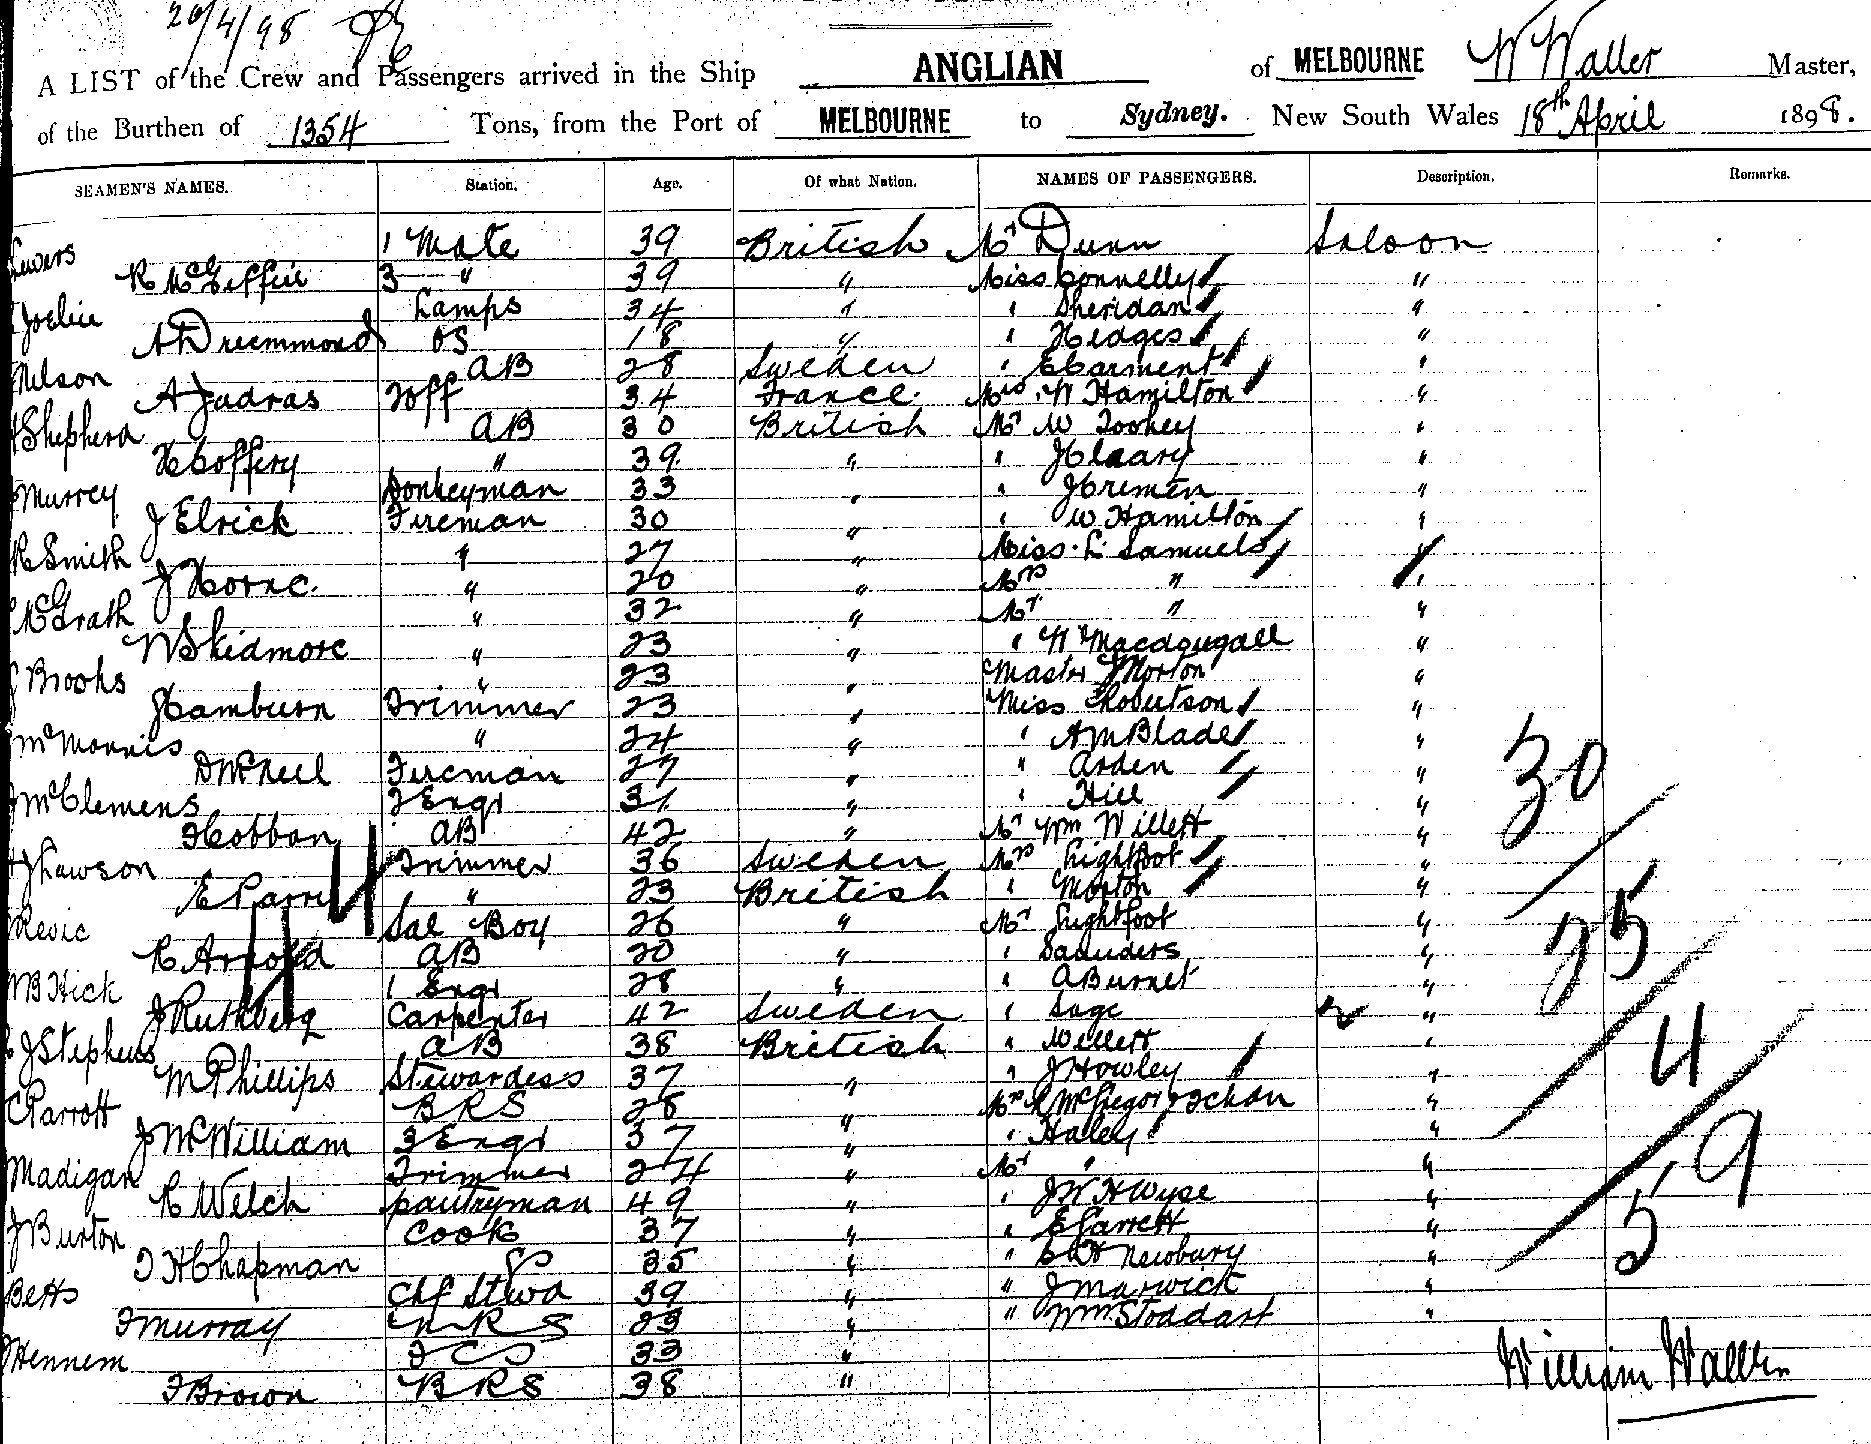 20/4/98
A LIST of the Crew and Passengers arrived in the Ship ANGLIAN of MELBOURNE W Waller Master,
of the Burthen of 1354 Tons, from the Port of MELBOURNE to Sydney. New South Wales 18th April 1898.
SEAMEN'S NAMES. Station. Age. Of what Nation. NAMES OF PASSENGERS. Description. Remarks.
1 Mate 39 British Mr Dunn Saloon
3 " 39 " Miss Connelly "
Lamps 34 " " Sheridan "
A Drummond OS 18 " " Hedges "
Nelson AB 28 Sweden " "
A Judras 34 France Mrs W Hamilton "
Shepherd AB 30 British Mr W Toohey "
H Coffery " 39 " " J Cleary "
Murrey Donkeyman 33 " " "
J Elrick Fireman 30 " " W Hamilton "
R Smith " 27 " Miss L Samuels "
J Horne " 20 " Mrs " "
McGrath " 32 " Mr " "
W Skidmore " 23 " " Macdougall "
J Brooks " 23 " Master J Morton "
J Hamburn Trimmer 23 " Miss Robertson "
" 24 " " A M Blade "
D McNeil Fireman 27 " " Arden "
McClemens 2 Engr 31 " " Hill "
AB 42 " Mr Wm Willett "
Lawson Trimmer 36 Sweden Mrs Lightfoot "
E Parr " 23 British " Morton "
Sal Boy 26 " Mr Lightfoot "
R Arnold AB 20 " " Saunders "
W B Hick 1 Engr 28 " " A Burnet "
J Ruthberg Carpenter 42 Sweden " Sage "
J Stephens AB 38 British " Willett "
M Phillips Stewardess 37 " " J Howley "
C Parrott BRS 28 " Mrs McGregor "
J McWilliam 3 Engr 37 " " Haley "
Madigan Trimmer 24 " Mr " "
R Welch pantryman 49 " " J W H Wyse "
J Burton Cook 37 " " E Garrett "
H Chapman 35 " " Newbury "
Betts Chf Stwd 39 " " J Marwick "
Murray 23 " " Wm Stoddart "
Hennem 33 "
Brown BRS 38 "
30
25
4
59
William Waller